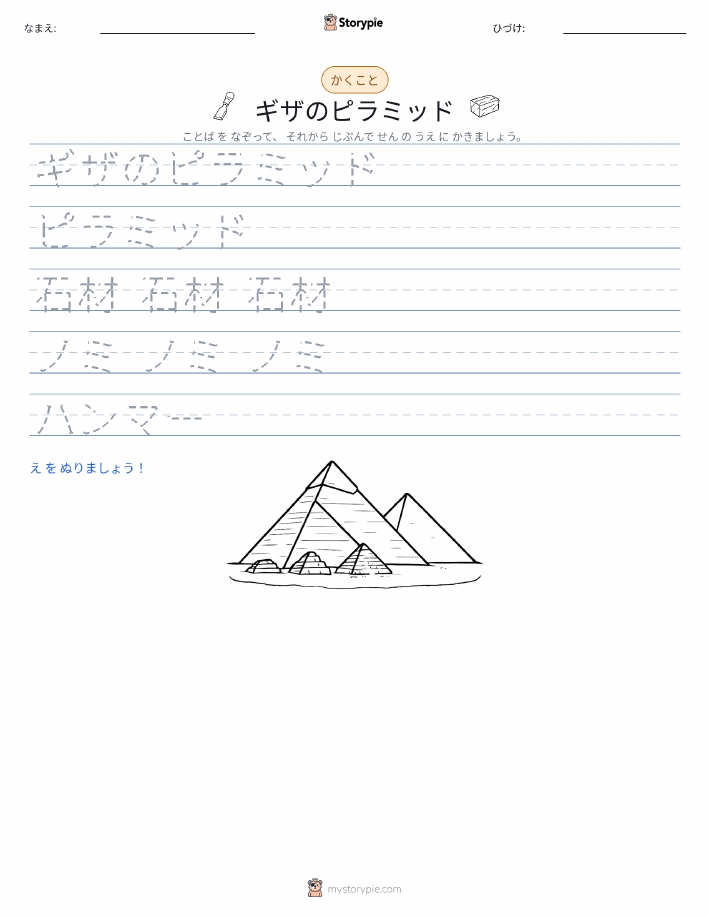 なまえ:
Storypie
ひづけ:
かくこと
ギザのピラミッド
ことば を なぞって、 それから じぶんで せん の うえ に かきましょう。
ギザのピラミッド
ピラミッド
石材 石材 石材
ノミ ノミ ノミ
ハンマー
え を ぬりましょう！
mystorypie.com